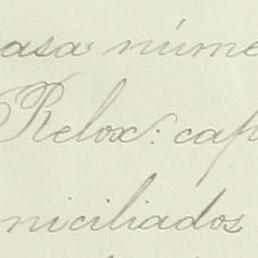 asa núme
Relox: cap
niciliados